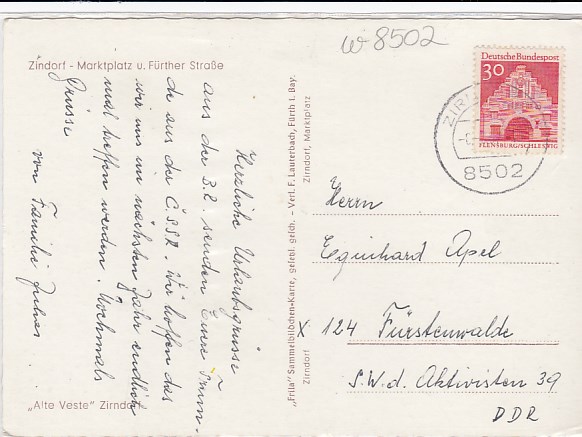 w 8502
Zindorf - Marktplatz u. Fürther Straße
Herzliche Urlaubsgrüsse
aus der B.R. senden Euere Freun-
de aus der Č.S.S.R. Wir hoffen das
wir uns im nächsten Jahr endlich
mal treffen werden. Nochmals
Grüsse
von Familie
„Alte Veste" Zirndorf
„Frila" Sammelbildchen-Karte, gesetzl. gesch. - Verl. F. Lauterbach, Fürth i. Bay.
Zirndorf Zirndorf, Marktplatz
Deutsche Bundespost
30
FLENSBURG/SCHLESWIG
ZIR
8502
Herrn
Eginhard Apel
X 124 Fürstenwalde
S.W.d. Aktivisten 39
DDR